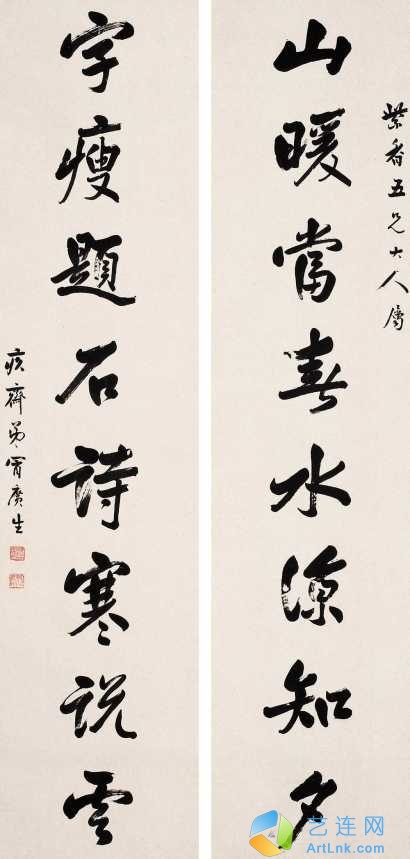 紫香五兄大人屬
山暖當春水涼知夕
字瘦題石詩寒説雲
疚齋弟冒廣生
艺连网
ArtLnk.cn